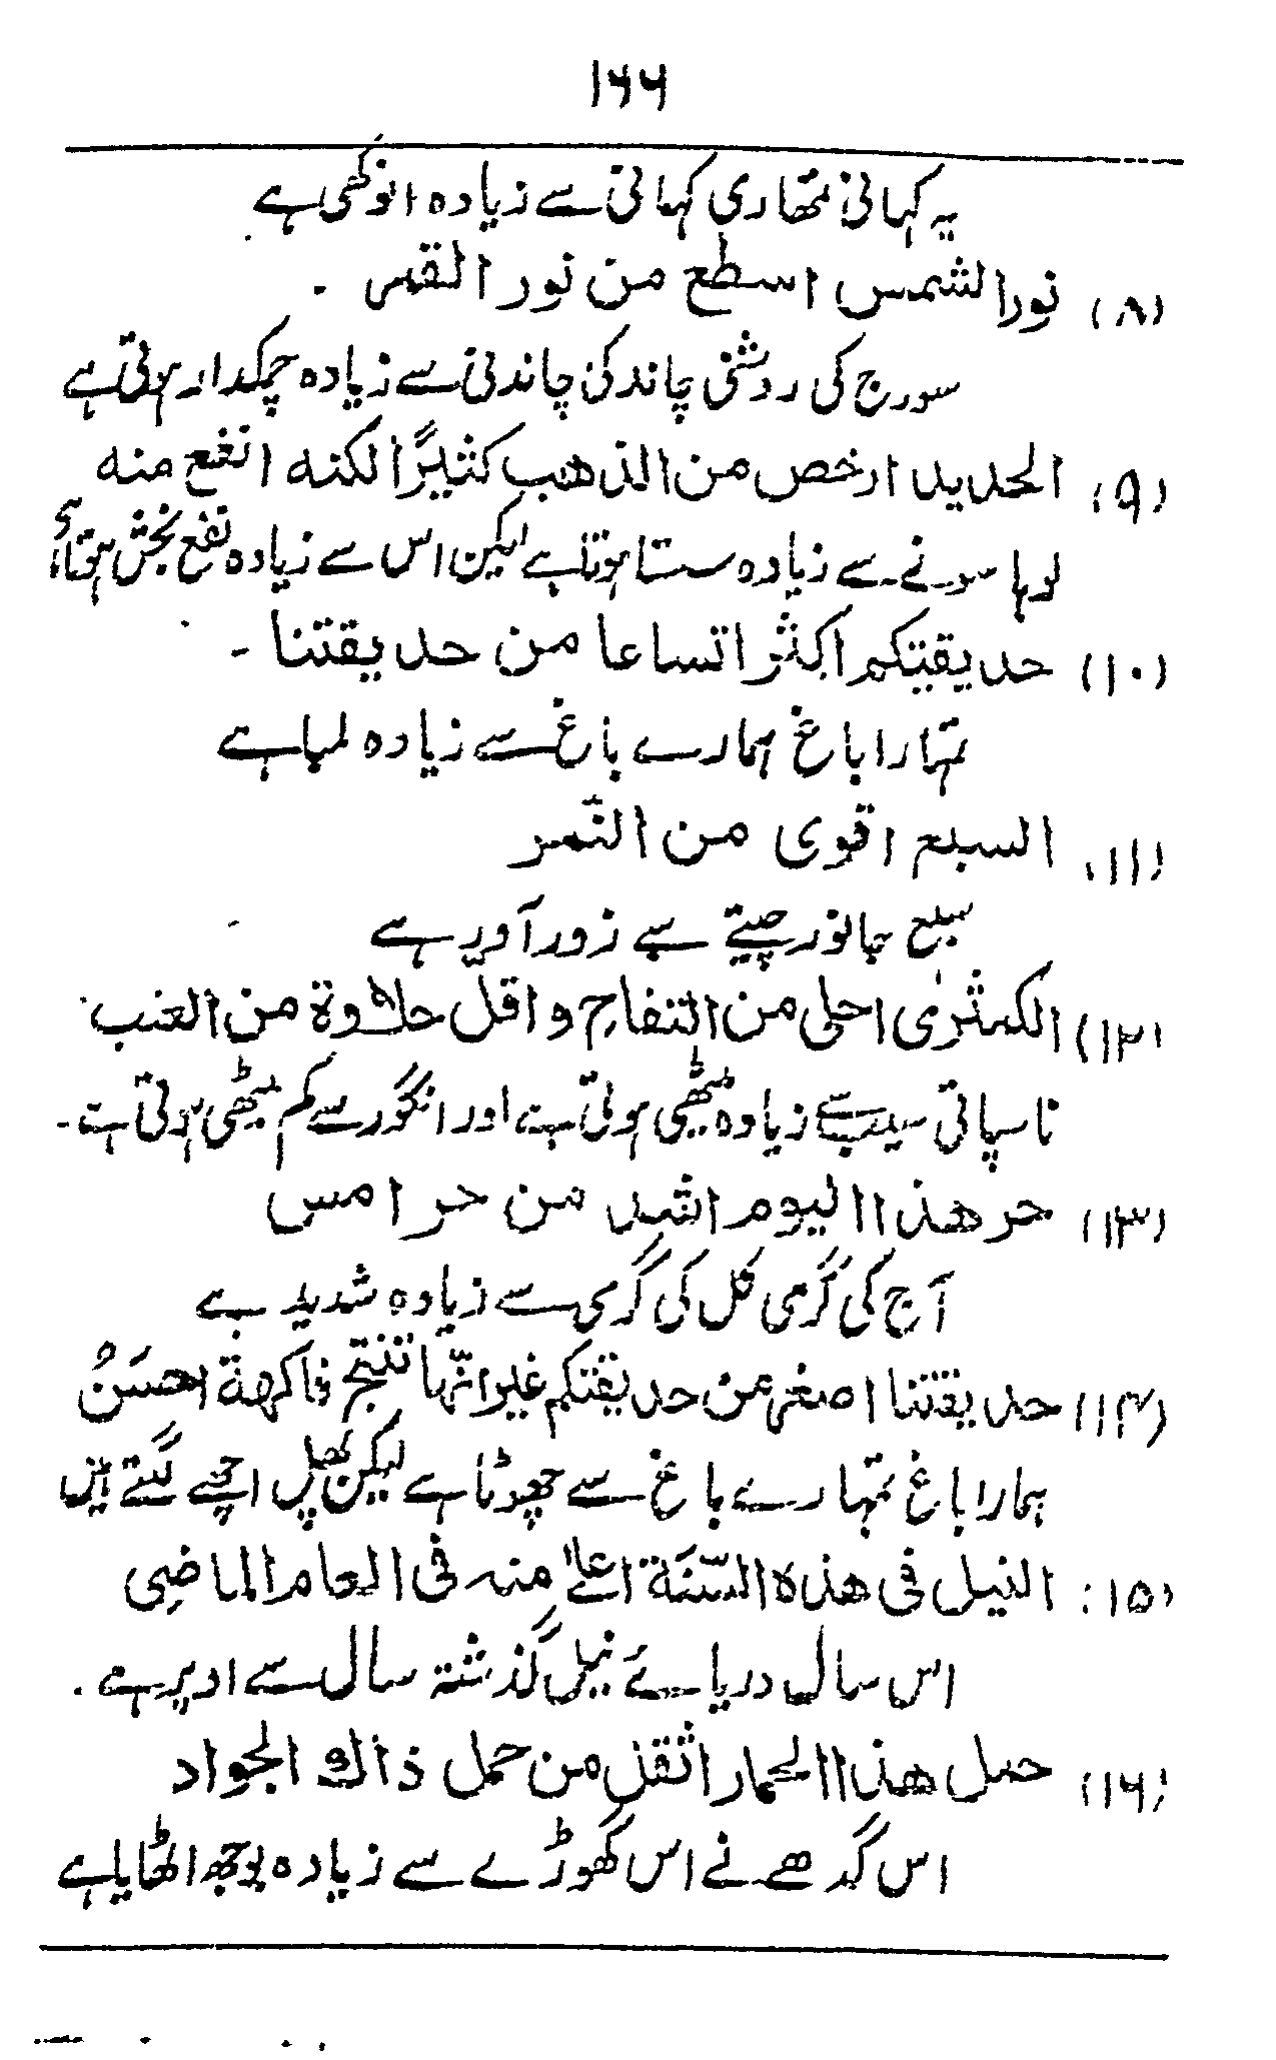 ۱۶۶
یہ کہانی تمھاری کہانی سے زیادہ انوکھی ہے
(۸) نورالشمس اسطع من نور القمر ۔
سورج کی روشنی چاند کی چاندنی سے زیادہ چمکدار ہوتی ہے
(۹) الحدید ارخص من الذهب کثیرًا لکنه انفع منه
لوہا سونے سے زیادہ سستا ہوتا ہے لیکن اس سے زیادہ نفع بخش ہوتا ہے
(۱۰) حدیقتکم اکثر اتساعا من حدیقتنا ۔
تمہارا باغ ہمارے باغ سے زیادہ لمبا ہے
(۱۱) السبع اقوی من النَّمر
سبع جانور چیتے سے زور آور ہے
(۱۲) الکمثرٰی احلی من التفاح و اقل حلاوة من العنب
ناسپاتی سیب سے زیادہ میٹھی ہوتی ہے اور انگور سے کم میٹھی ہوتی ہے ۔
(۱۳) حر هذا الیوم اشد من حر امس
آج کی گرمی کل کی گرمی سے زیادہ شدید ہے
(۱۴) حدیقتنا اصغر من حدیقتکم غیر انّها تنتج فاکهة احسَنُ
ہمارا باغ تمہارے باغ سے چھوٹا ہے لیکن پھل اچھے لگتے ہیں
(۱۵) النیل فی هذه السَّنَة اعلےٰ منه فی العام الماضِی
اس سال دریائے نیل گذشتہ سال سے اوپر ہے ۔
(۱۶) حمل هذا الحمار اثقل من حمل ذالک الجواد
اس گدھے نے اس گھوڑے سے زیادہ بوجھ اٹھایا ہے